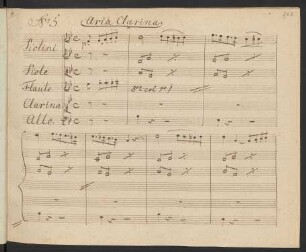 No. 5 Aria Clarina
Violini
Viole
Flaute
Clarina
Allo.